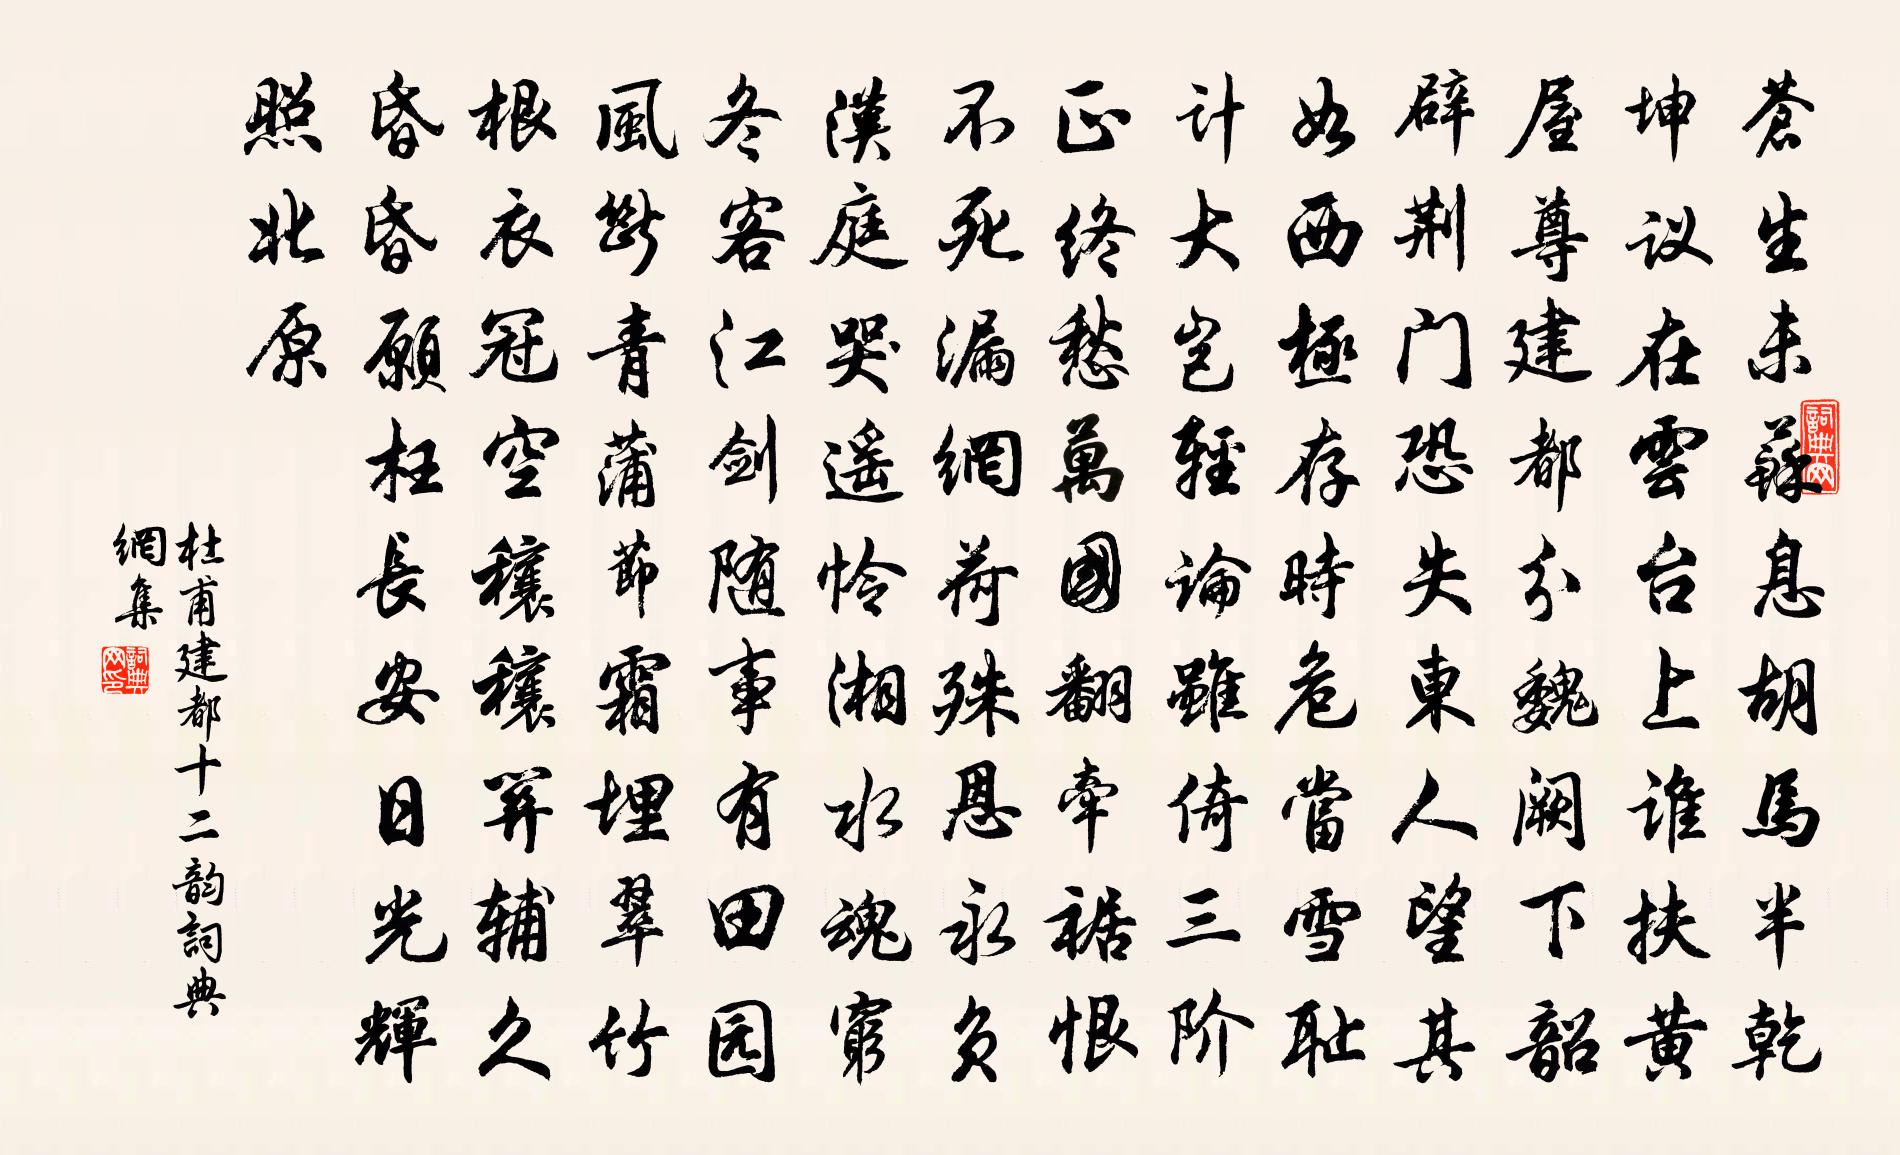 蒼生未蘇息胡馬半乾
坤议在雲台上谁扶黄
屋尊建都分魏阙下韶
辟荆门恐失東人望其
如西極存時危當雪耻
计大岂輕論雖倚三阶
正终愁萬國翻牵裾恨
不死漏網荷殊恩永负
漢庭哭遥怜湘水魂窮
冬客江剑随事有田园
風斷青蒲節霜埋翠竹
根衣冠空穰穰関辅久
昏昏願枉長安日光輝
照北原
杜甫建都十二韵詞典
網集
詞典网
詞典网印